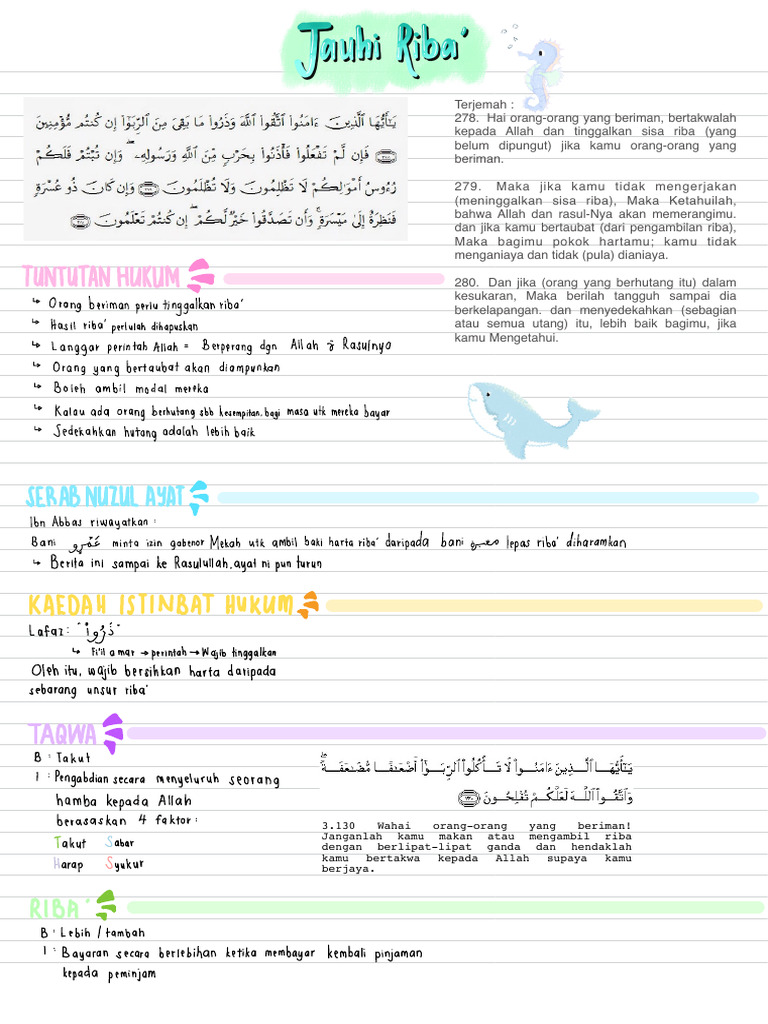 Jauhi Riba'
يَـٰٓأَيُّهَا ٱلَّذِينَ ءَامَنُوا۟ ٱتَّقُوا۟ ٱللَّهَ وَذَرُوا۟ مَا بَقِىَ مِنَ ٱلرِّبَوٰٓا۟ إِن كُنتُم مُّؤْمِنِينَ
﴿٢٧٨﴾ فَإِن لَّمْ تَفْعَلُوا۟ فَأْذَنُوا۟ بِحَرْبٍ مِّنَ ٱللَّهِ وَرَسُولِهِۦ ۖ وَإِن تُبْتُمْ فَلَكُمْ
رُءُوسُ أَمْوَٰلِكُمْ لَا تَظْلِمُونَ وَلَا تُظْلَمُونَ ﴿٢٧٩﴾ وَإِن كَانَ ذُو عُسْرَةٍ
فَنَظِرَةٌ إِلَىٰ مَيْسَرَةٍ ۚ وَأَن تَصَدَّقُوا۟ خَيْرٌ لَّكُمْ ۖ إِن كُنتُمْ تَعْلَمُونَ ﴿٢٨٠﴾
Terjemah :
278. Hai orang-orang yang beriman, bertakwalah
kepada Allah dan tinggalkan sisa riba (yang
belum dipungut) jika kamu orang-orang yang
beriman.
279. Maka jika kamu tidak mengerjakan
(meninggalkan sisa riba), Maka Ketahuilah,
bahwa Allah dan rasul-Nya akan memerangimu.
dan jika kamu bertaubat (dari pengambilan riba),
Maka bagimu pokok hartamu; kamu tidak
menganiaya dan tidak (pula) dianiaya.
280. Dan jika (orang yang berhutang itu) dalam
kesukaran, Maka berilah tangguh sampai dia
berkelapangan. dan menyedekahkan (sebagian
atau semua utang) itu, lebih baik bagimu, jika
kamu Mengetahui.
TUNTUTAN HUKUM
↳ Orang beriman perlu tinggalkan riba'
↳ Hasil riba' perlulah dihapuskan
↳ Langgar perintah Allah = Berperang dgn Allah & Rasulnyo
↳ Orang yang bertaubat akan diampunkan
↳ Boleh ambil modal mereka
↳ Kalau ada orang berhutang sbb kesempitan, bagi masa utk mereka bayar
↳ Sedekahkan hutang adalah lebih baik
SERAB NUZUL AYAT
Ibn Abbas riwayatkan :
Bani عَمْرو minta izin gabenor Mekah utk ambil baki harta riba' daripada bani lepas riba' diharamkan
↳ Berita ini sampai ke Rasulullah, ayat ni pun turun
KAEDAH ISTINBAT HUKUM
Lafaz : "ذَرُوا"
↳ Fi'il amar → perintah → Wajib tinggalkan
Oleh itu, wajib bersihkan harta daripada
sebarang unsur riba'
TAQWA
B : Takut
I : Pengabdian secara menyeluruh seorang
hamba kepada Allah
berasaskan 4 faktor :
Takut Sabar
Harap Syukur
يَـٰٓأَيُّهَا ٱلَّذِينَ ءَامَنُوا۟ لَا تَأْكُلُوا۟ ٱلرِّبَوٰٓا۟ أَضْعَـٰفًا مُّضَـٰعَفَةً ۖ
وَٱتَّقُوا۟ ٱللَّهَ لَعَلَّكُمْ تُفْلِحُونَ ﴿١٣٠﴾
3.130 Wahai orang-orang yang beriman!
Janganlah kamu makan atau mengambil riba
dengan berlipat-lipat ganda dan hendaklah
kamu bertakwa kepada Allah supaya kamu
berjaya.
RIBA'
B : Lebih / tambah
I : Bayaran secara berlebihan ketika membayar kembali pinjaman
kepada peminjam